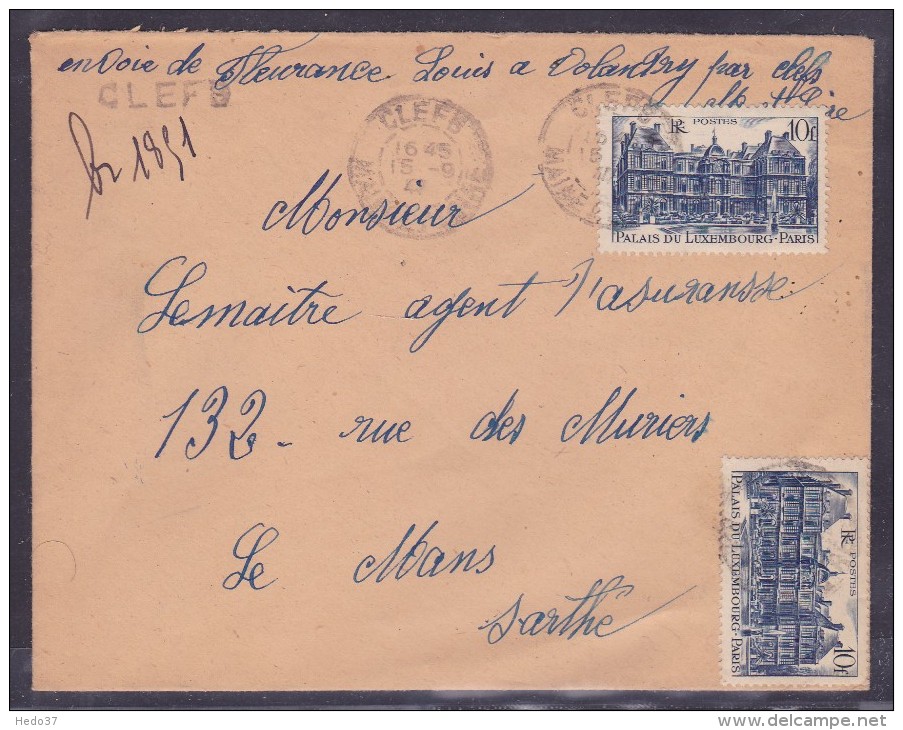 envoie de Fleurance Louis a Volandry par clefs
CLEFS
No 1891
CLEFS
16 45
15 9
MAINE
CLEFS
MAINE
RF POSTES 10f
PALAIS DU LUXEMBOURG-PARIS
Monsieur
Lemaitre agent d'asuransse
132 - rue des Muriers
Le Mans
Sarthe
RF POSTES 10f
PALAIS DU LUXEMBOURG-PARIS
Hedo37
delcampe.net